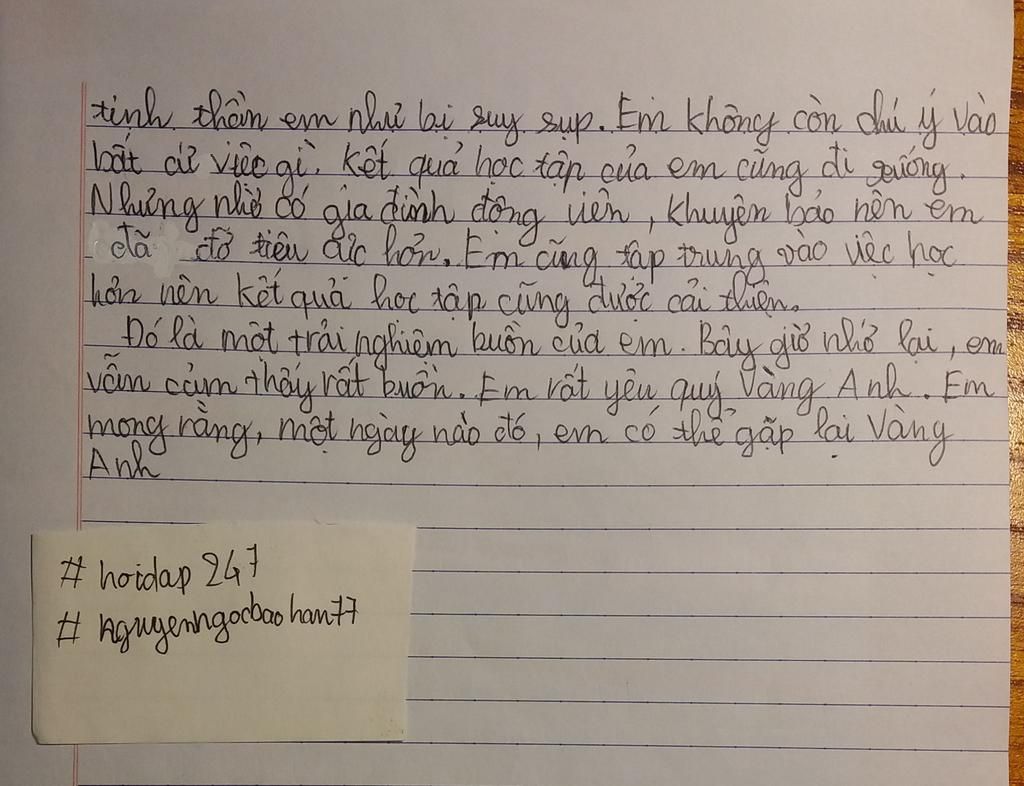 tinh thần em như bị suy sụp. Em không còn chú ý vào
bất cứ việc gì. Kết quả học tập của em cũng đi xuống.
Nhưng nhờ có gia đình động viên, khuyên bảo nên em
đã đỡ tiêu cực hơn. Em cũng tập trung vào việc học
hơn nên kết quả học tập cũng được cải thiện.
Đó là một trải nghiệm buồn của em. Bây giờ nhớ lại, em
vẫn cảm thấy rất buồn. Em rất yêu quý Vàng Anh. Em
mong rằng, một ngày nào đó, em có thể gặp lại Vàng
Anh
# hoidap247
# nguyenngocbaohan77